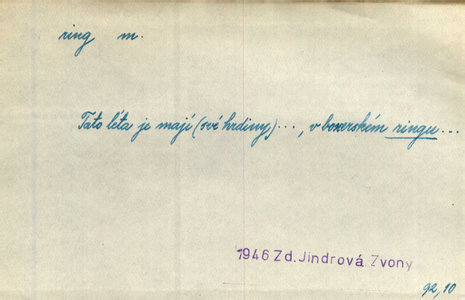 ring m.
Tato léta je mají (své hrdiny) ..., v boxerském ringu ...
1946 Zd. Jindrová Zvony
92,10